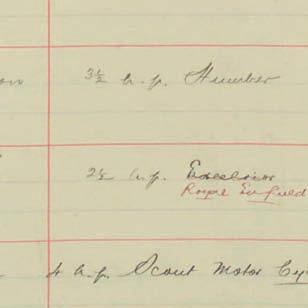 3½ h.p. Humber
2½ h.p. Excelsior
Royal Enfield
4 h.p. Scout Motor Cy